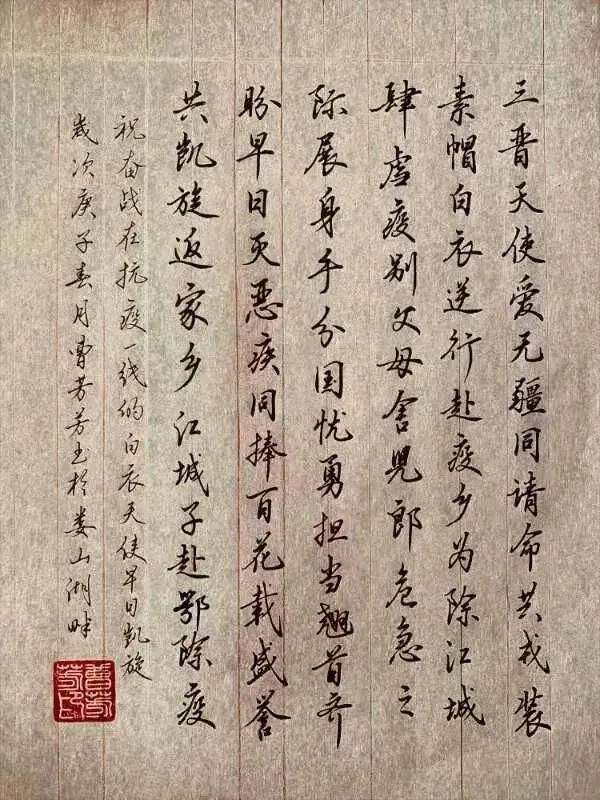 三晋天使爱无疆同请命共戎装
素帽白衣逆行赴疫乡为除江城
肆虐疫别父母舍兒郎危急之
际展身手分国忧勇担当翘首齐
盼早日灭恶疾同捧百花载盛誉
共凯旋返家乡 江城子赴鄂除疫
祝奋战在抗疫一线的白衣天使早日凯旋
嵗次庚子春月曹芳芳书於娄山湖畔
曹芳芳印